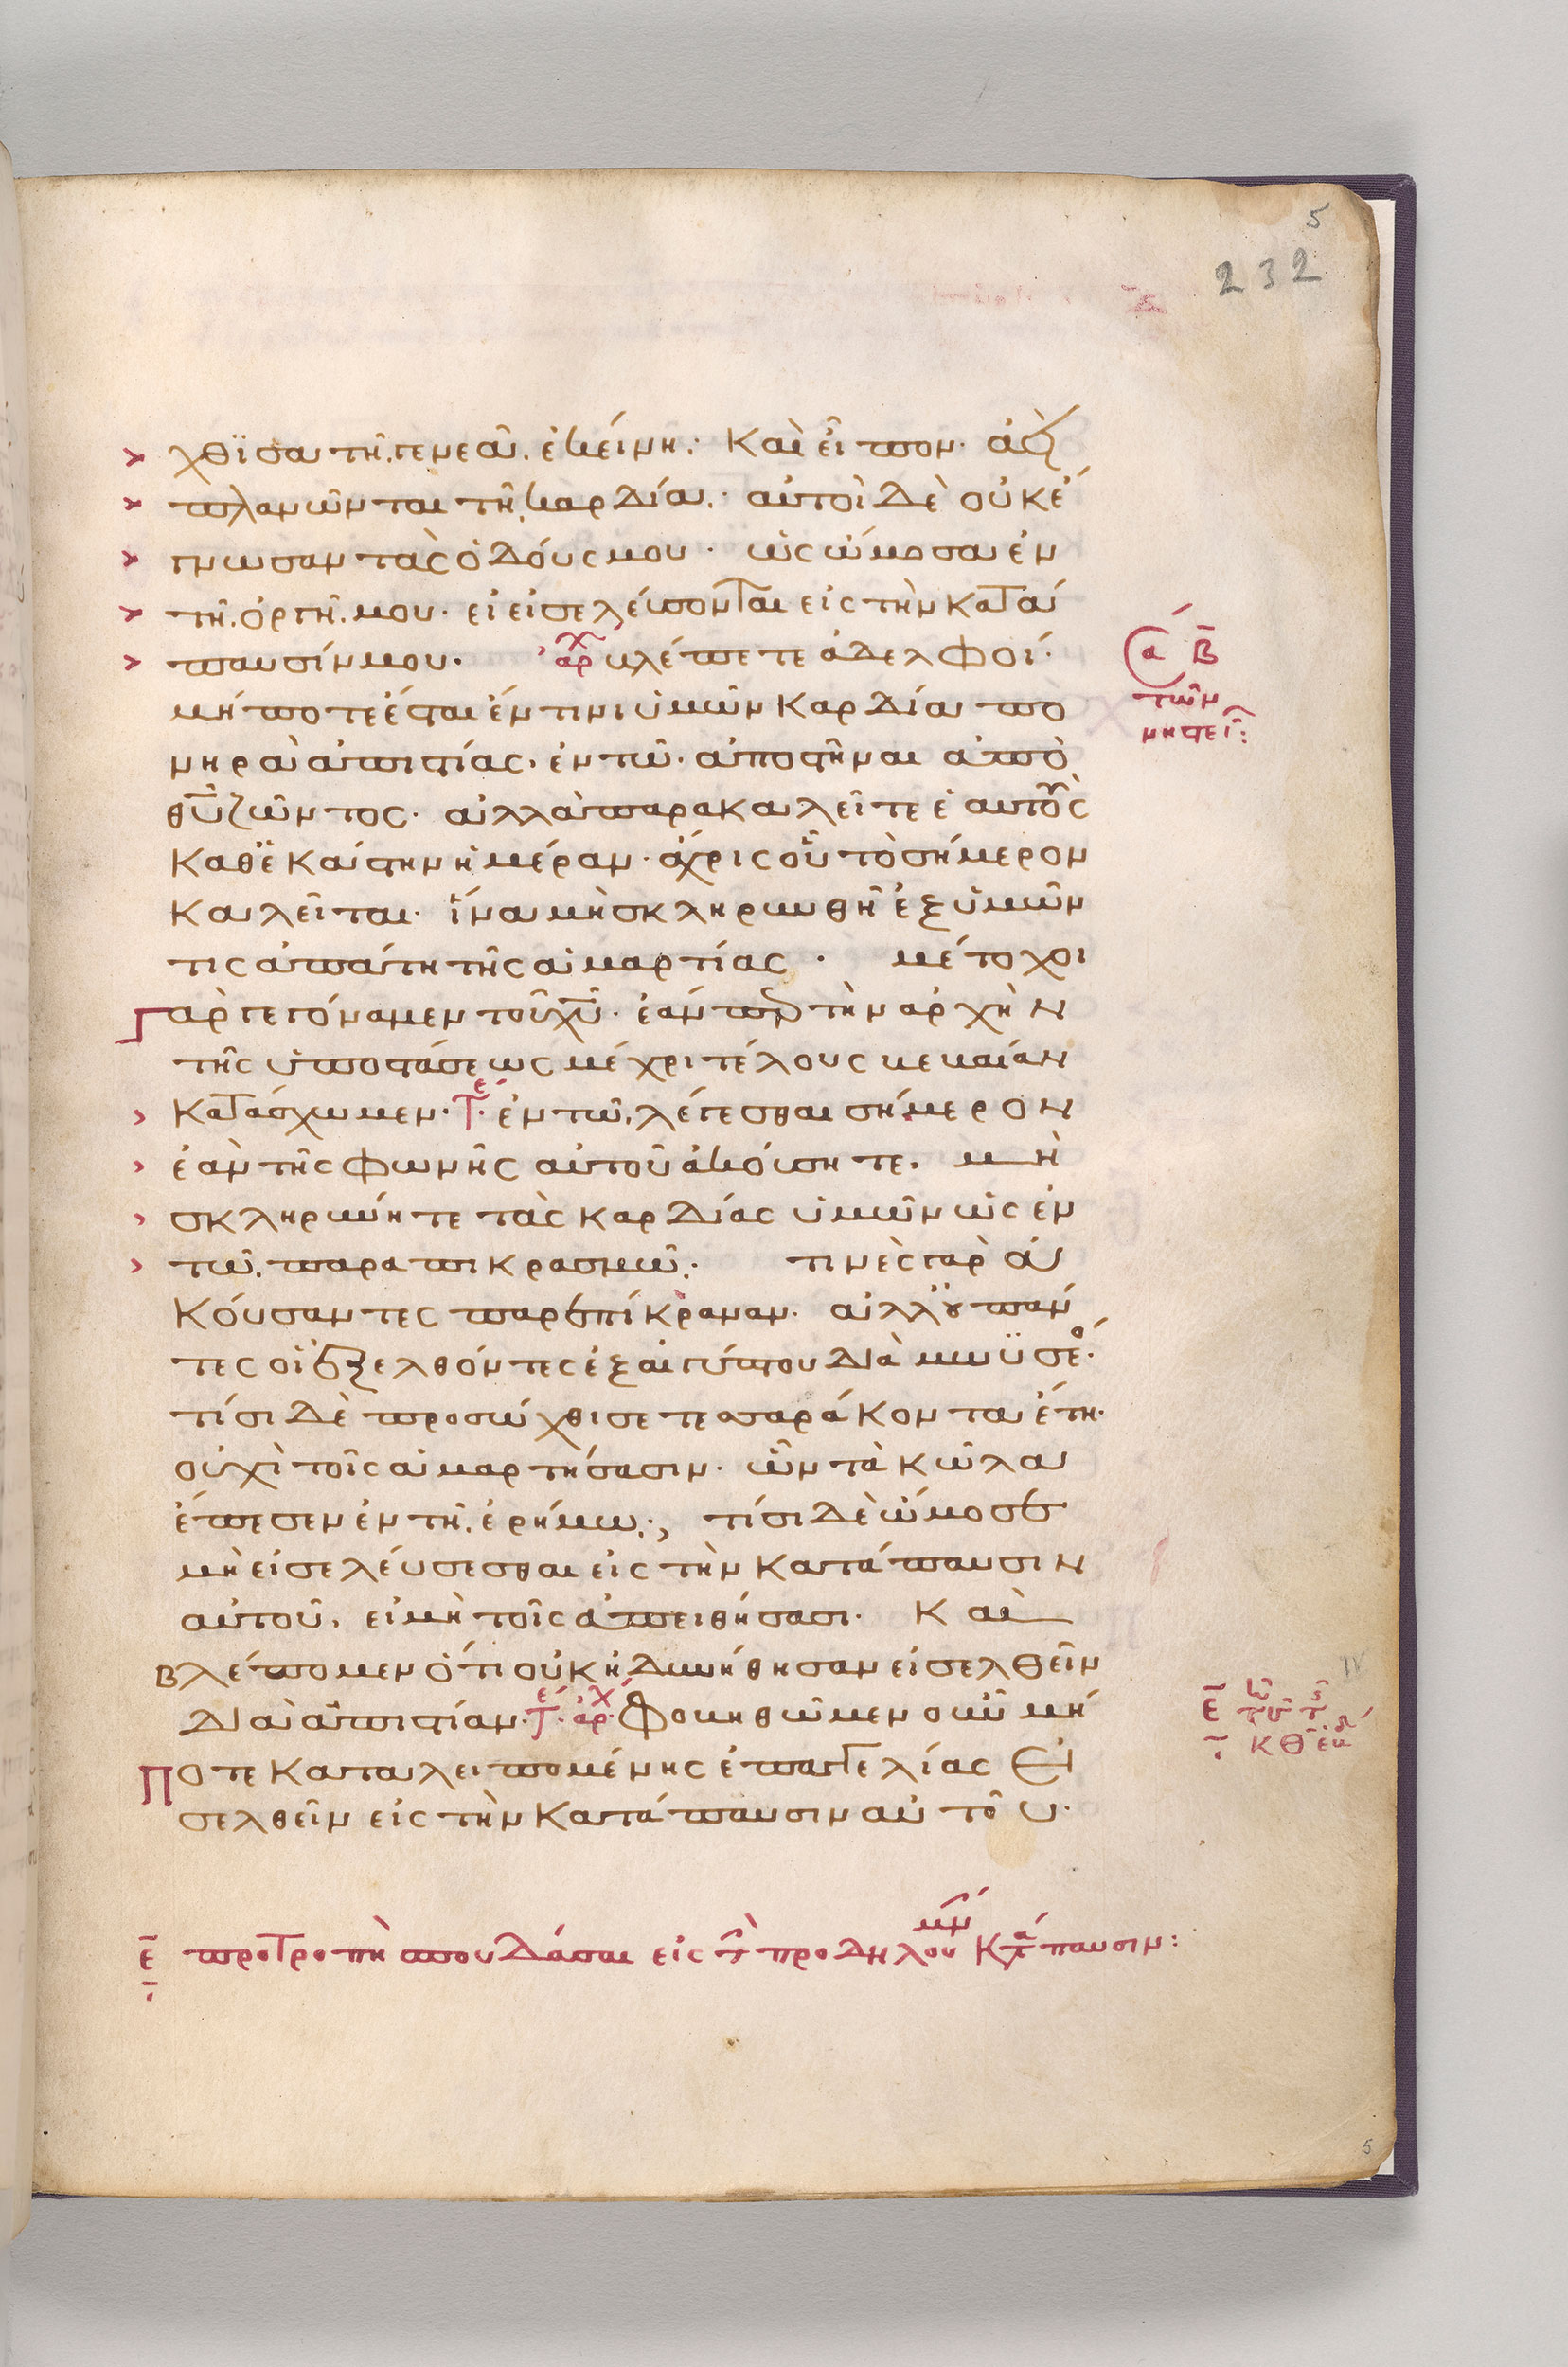 5
232
χθϊσα τῆ γενεᾶ ἐκείνη: Και εἶπον· ἀεὶ
πλανῶνται τῆ καρδία· αὐτοὶ δὲ οὐκ ἔ
γνωσαν τὰς ὁδούς μου· ὡς ὤμοσα ἐν
τῆ ὀργῆ μου· εἰ εἰσελεύσονται εἰς τὴν κατά
παυσίν μου· αρχ βλέπετε ἀδελφοί·
μήποτε ἔσται ἔν τινι ὑμῶν καρδία πο
νηρὰ ἀπιστίας· ἐν τῶ ἀποστῆναι ἀπὸ
θυ ζῶντος· ἀλλὰ παρακαλεῖτε ἑαυτοὺς
καθ' ἑκάστην ἡμέραν· ἄχρις οὗ τὸ σήμερον
καλεῖται· ἵνα μὴ σκληρυνθῆ ἐξ ὑμῶν
τις ἀπάτη τῆς ἁμαρτίας· μέτοχοι
γὰρ γεγόναμεν τοῦ χυ· ἐάνπερ τὴν ἀρχὴν
τῆς ὑποστάσεως μέχρι τέλους βεβαίαν
κατάσχωμεν· τε ἐν τῶ λέγεσθαι σήμερον
ἐὰν τῆς φωνῆς αὐτοῦ ἀκούσητε· μὴ
σκληρύνητε τὰς καρδίας ὑμῶν ὡς ἐν
τῶ παραπικρασμῶ: τινὲς γὰρ ἀ
κούσαντες παρεπίκραναν· ἀλλ' οὐ πάν
τες οἱ ἐξελθόντες ἐξ αἰγύπτου διὰ μωϋσέο·
τίσι δὲ προσώχθισε τεσσαράκοντα ἔτη·
οὐχὶ τοῖς ἁμαρτήσασιν· ὧν τὰ κῶλα
ἔπεσεν ἐν τῆ ἐρήμω·, τίσι δὲ ὤμοσε
μὴ εἰσελεύσεσθαι εἰς τὴν κατάπαυσιν
αὐτοῦ· εἰ μὴ τοῖς ἀπειθήσασι· Καὶ
βλέπομεν ὅτι οὐκ ἠδυνήθησαν εἰσελθεῖν
δι' ἀπιστίαν· τε αρχ Φοβηθῶμεν οὖν μή
ποτε καταλειπομένης ἐπαγγελίας εἰ
σελθεῖν εἰς τὴν κατάπαυσιν αὐτοῦ·
α β
τῶν
νηστει:
ε
ε προτροπὴ σπουδάσαι εἰς τὴν προδηλουμεν καταπαυσιν:
5